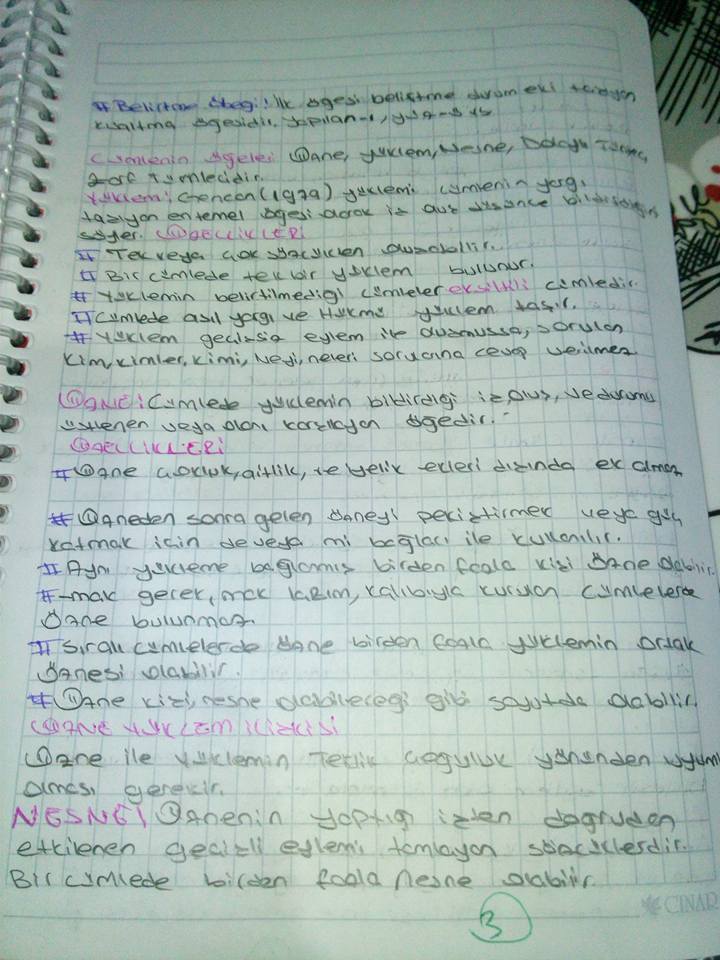 # Belirtme öbeği: İlk ögesi belirtme durum eki taşıyan
kısaltma ögesidir. yapılan-ı, yüz-ü
Cümlenin ögeleri Özne, yüklem, Nesne, Dolaylı Tümleç,
Zarf tümlecidir.
Yüklem: Gencan(1979) yüklemi cümlenin yargı
taşıyan en temel ögesi olarak iş oluş düşünce bildirdiğini
söyler. ÖZELLİKLERİ
# Tek veya çok sözcükten oluşabilir.
# Bir cümlede tek bir yüklem bulunur.
# Yüklemin belirtilmediği cümleler eksiltili cümledir.
# Cümlede asıl yargı ve Hükmü yüklem taşır.
# Yüklem geçişsiz eylem ile oluşmuşsa, sorulan
kim, kimler, kimi, neyi, neleri sorusuna cevap verilmez
ÖZNE: Cümlede yüklemin bildirdiği iş oluş, ve durumu
üstlenen veya olanı karşılayan ögedir.
ÖZELLİKLERİ
# Özne çokluk, aitlik, ve iyelik ekleri dışında ek almaz
# Özneden sonra gelen özneyi pekiştirmek veya güç
katmak için de veya mi bağlacı ile kullanılır.
# Aynı yükleme bağlanmış birden fazla kişi özne olabilir.
# -mak gerek, mak lazım, kalıbıyla kurulan cümlelerde
özne bulunmaz.
# Sıralı cümlelerde özne birden fazla yüklemin ortak
öznesi olabilir.
# Özne kişi, nesne olabileceği gibi soyutda olabilir.
ÖZNE YÜKLEM İLİŞKİSİ
Özne ile yüklemin Teklik çoğulluk yönünden uyumlu
olması gerekir.
NESNE: Öznenin yaptığı işten doğrudan
etkilenen geçişli eylemi tamlayan sözcüklerdir.
Bir cümlede birden fazla nesne olabilir.
3
ÇINAR